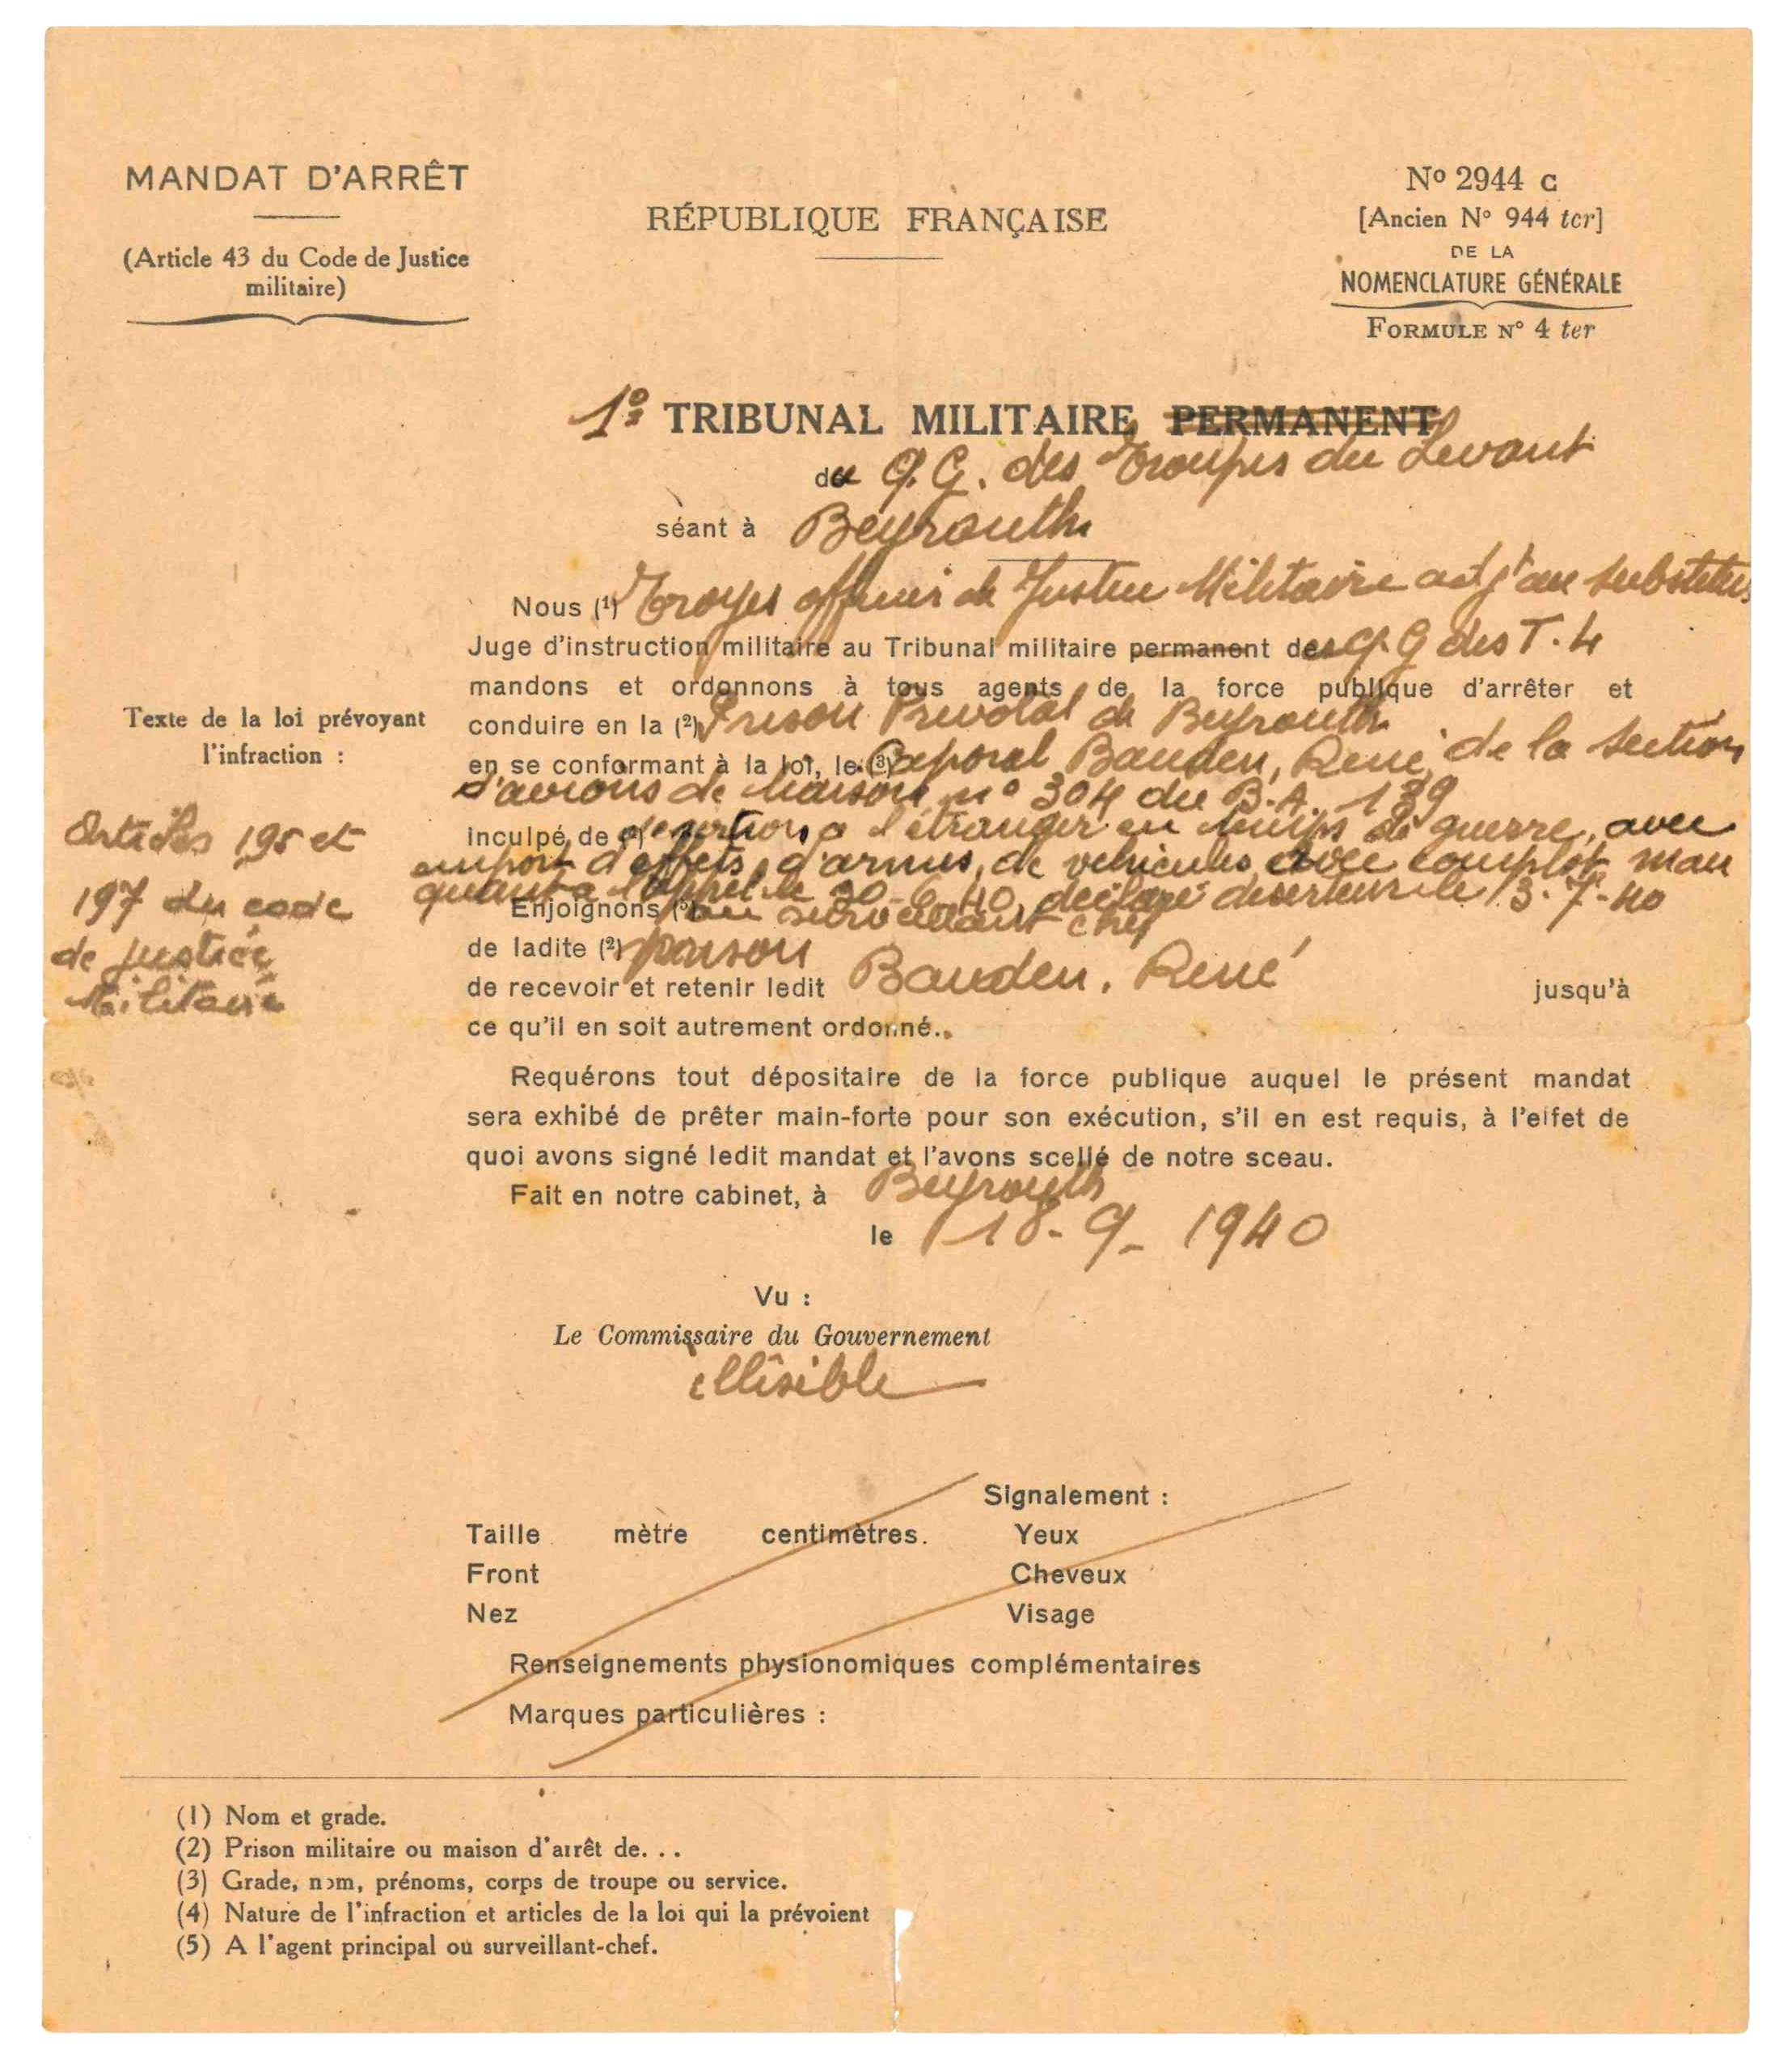 MANDAT D'ARRÊT
(Article 43 du Code de Justice
militaire)
RÉPUBLIQUE FRANÇAISE
No 2944 C
[Ancien No 944 ter]
DE LA
NOMENCLATURE GÉNÉRALE
FORMULE No 4 ter
1o TRIBUNAL MILITAIRE PERMANENT
du Q.G. des Troupes du Levant
séant à Beyrouth
Nous (1) Troyes officier de Justice Militaire adjt au substitut
Juge d'instruction militaire au Tribunal militaire permanent des Q.G des T. L
mandons et ordonnons à tous agents de la force publique d'arrêter et
conduire en la (2) Prison Prevotal de Beyrouth
en se conformant à la loi, le (3) Caporal Bauden, René, de la Section
d'avions de liaison no 304 du B.A. 139
inculpé de (4) desertion a l'étranger en temps de guerre, avec
emport d'effets, d'armes, de vehicules, avec complot man
quant a l'appel le 30-6-40, déclaré deserteur le 3-7-40
Enjoignons (5) au surveillant chef
de ladite (2) prison
de recevoir et retenir ledit Bauden, René jusqu'à
ce qu'il en soit autrement ordonné.
Texte de la loi prévoyant
l'infraction :
Articles 195 et
197 du code
de justice
Militaire
Requérons tout dépositaire de la force publique auquel le présent mandat
sera exhibé de prêter main-forte pour son exécution, s'il en est requis, à l'effet de
quoi avons signé ledit mandat et l'avons scellé de notre sceau.
Fait en notre cabinet, à Beyrouth
le 18-9-1940
Vu :
Le Commissaire du Gouvernement
illisible
Signalement :
Taille mètre centimètres. Yeux
Front Cheveux
Nez Visage
Renseignements physionomiques complémentaires
Marques particulières :
(1) Nom et grade.
(2) Prison militaire ou maison d'arrêt de. . .
(3) Grade, nom, prénoms, corps de troupe ou service.
(4) Nature de l'infraction et articles de la loi qui la prévoient
(5) A l'agent principal ou surveillant-chef.